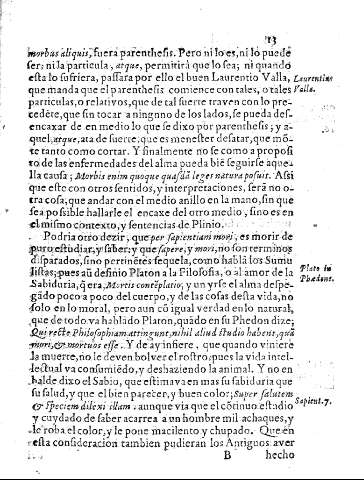 13
morbus aliquis, fuera parenthesis. Pero ni lo es, ni lo puede
ser; ni la particula, atque, permitirà que lo sea; ni quando
esta lo sufriera, passàra por ello el buen Laurentio Valla,
Laurentius
que manda que el parenthesis comience con tales, o tales
Valla.
particulas, o relativos, que de tal suerte traven con lo pre-
cedẽte, que sin tocar a ningnno de los lados, se pueda des-
encaxar de en medio lo que se dixo por parenthesis; y a-
quel, atque, ata de suerte, que es menester desatar, que mõ-
te tanto como cortar. Y finalmente no se como a proposi
to de las enfermedades del alma pueda biẽ seguirse aque-
lla causa; Morbis enim quoque quasdã leges natura posuit. Assi
que este con otros sentidos, y interpretaciones, serà no o-
tra cosa, que andar con el medio anillo en la mano, sin que
sea possible hallarle el encaxe del otro medio, sino es en
el mismo contexto, y sentencias de Plinio.
Podria otro dezir, que per sapientiam mori, es morir de
puro estudiar, y saber; y que sapere, y mori, no son terminos
disparados, sino pertinẽtes sequela, como hablã los Sumu
listas; pues aũ definio Platon a la Filosofia, o al amor de la
Plato in
Sabiduria, q̃ era, Mortis contẽplatio; y un yrse el alma despe-
Phedone.
gãdo poco a poco del cuerpo, y de las cosas desta vida, no
solo en lo moral, pero aun cõ igual verdad en lo natural,
que de todo va hablãdo Platon, quãdo en su Phedon dize;
Qui rectè Philosophiam attingunt, nihil aliud studio habent, quã
mori, & mortuos esse. Y de ay infiere, que quando viniere
la muerte, no le deven bolver el rostro; pues la vida intel-
lectual va consumiẽdo, y deshaziendo la animal. Y no en
balde dixo el Sabio, que estimava en mas su sabiduria que
su salud, y que el bien parecer, y buen color; Super salutem
Sapient. 7.
& speciem dilexi illam. aunque via que el cõtinuo estudio
y cuydado de saber acarrea a un hombre mil achaques, y
le roba el color, y le pone macilento y chupado. Que en
esta consideracion tambien pudieran los Antiguos aver
B hecho